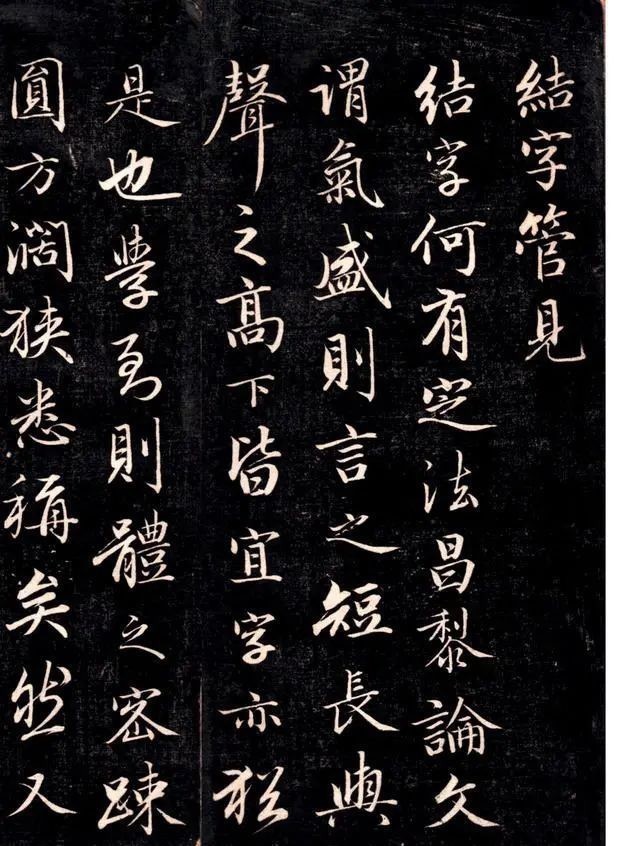 結字管見
結字何有定法昌黎論文
謂氣盛則言之短長與
聲之高下皆宜字亦猶
是也學到則體之密疎
圓方濶狹悉稱矣然又